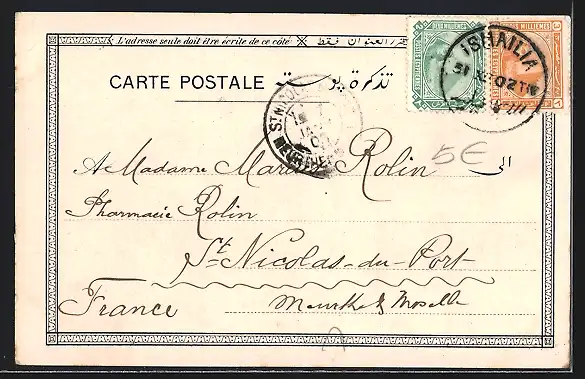 L'adresse seule doit être écrite de ce côté
CARTE POSTALE تذكرة بوستة
ISMAILIA
31 XII 02
ST NICOLAS
MEURTHE
5€
الى
A Madame Rolin
Pharmacie Rolin
St. Nicolas-du-Port
France Meurthe & Moselle